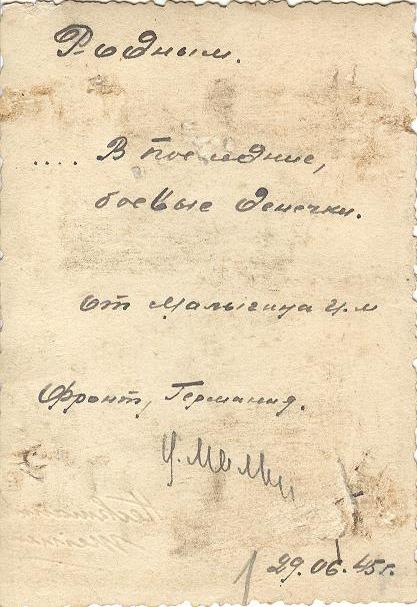 Родным.
.... В последние,
боевые денечки.
от Малыгина И.М
Фронт, Германия.
29.06.45г.